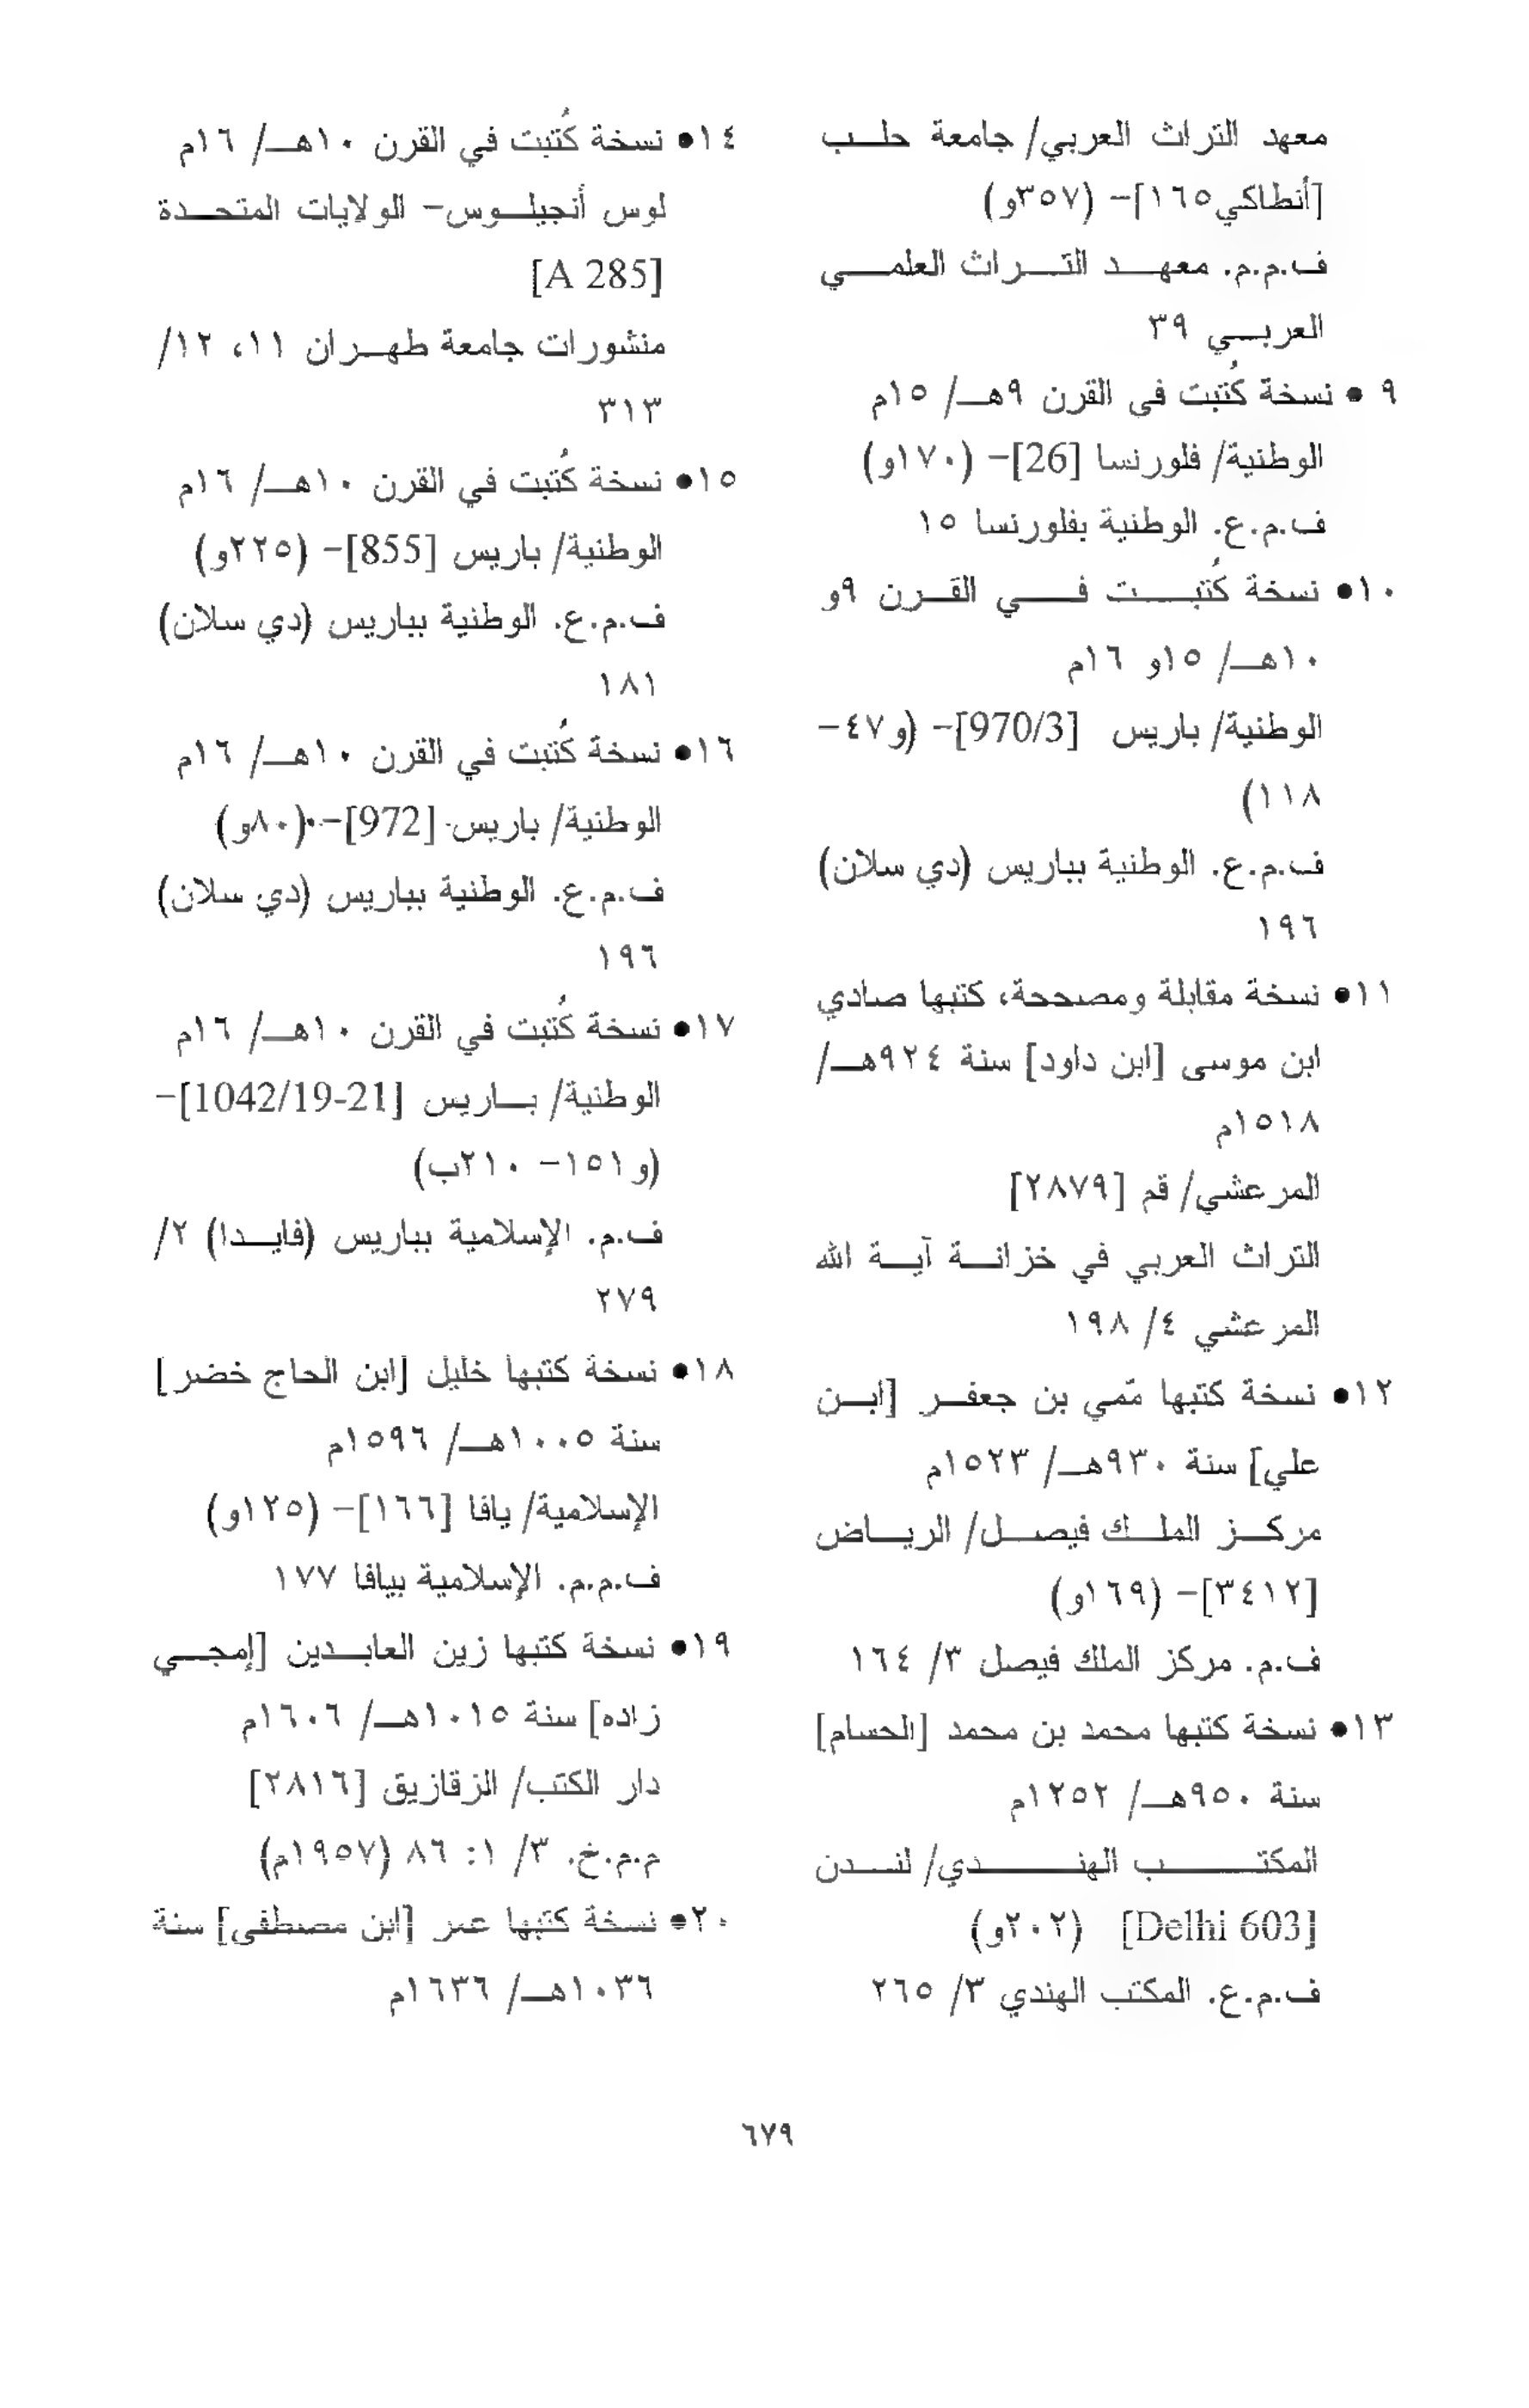 معهد التراث العربي/ جامعة حلب
[أنطاكي١٦٥]- (٣٥٧و)
ف.م.م. معهد التراث العلمي
العربي ٣٩
٩ • نسخة كُتبت في القرن ٩هـ/ ١٥م
الوطنية/ فلورنسا [26]- (١٧٠و)
ف.م.ع. الوطنية بفلورنسا ١٥
١٠• نسخة كُتبت في القرن ٩و
١٠هـ/ ١٥و ١٦م
الوطنية/ باريس [970/3]- (و٤٧-
١١٨)
ف.م.ع. الوطنية بباريس (دي سلان)
١٩٦
١١• نسخة مقابلة ومصححة، كتبها صادي
ابن موسى [ابن داود] سنة ٩٢٤هـ/
١٥١٨م
المرعشي/ قم [٢٨٧٩]
التراث العربي في خزانة آية الله
المرعشي ٤/ ١٩٨
١٢• نسخة كتبها ممّي بن جعفر [ابن
علي] سنة ٩٣٠هـ/ ١٥٢٣م
مركز الملك فيصل/ الرياض
[٣٤١٢]- (١٦٩و)
ف.م. مركز الملك فيصل ٣/ ١٦٤
١٣• نسخة كتبها محمد بن محمد [الحسام]
سنة ٩٥٠هـ/ ١٢٥٢م
المكتب الهندي/ لندن
[Delhi 603] (٢٠٢و)
ف.م.ع. المكتب الهندي ٣/ ٢٦٥
١٤• نسخة كُتبت في القرن ١٠هـ/ ١٦م
لوس أنجيلوس- الولايات المتحدة
[A 285]
منشورات جامعة طهران ١١، ١٢/
٣١٣
١٥• نسخة كُتبت في القرن ١٠هـ/ ١٦م
الوطنية/ باريس [855]- (٢٢٥و)
ف.م.ع. الوطنية بباريس (دي سلان)
١٨١
١٦• نسخة كُتبت في القرن ١٠هـ/ ١٦م
الوطنية/ باريس [972]- (٨٠و)
ف.م.ع. الوطنية بباريس (دي سلان)
١٩٦
١٧• نسخة كُتبت في القرن ١٠هـ/ ١٦م
الوطنية/ باريس [1042/19-21]-
(و١٥١- ٢١٠ب)
ف.م. الإسلامية بباريس (فايدا) ٢/
٢٧٩
١٨• نسخة كتبها خليل [ابن الحاج خضر]
سنة ١٠٠٥هـ/ ١٥٩٦م
الإسلامية/ يافا [١٦٦]- (١٢٥و)
ف.م.م. الإسلامية بيافا ١٧٧
١٩• نسخة كتبها زين العابدين [إمجي
زاده] سنة ١٠١٥هـ/ ١٦٠٦م
دار الكتب/ الزقازيق [٢٨١٦]
م.م.خ. ٣/ ١: ٨٦ (١٩٥٧م)
٢٠• نسخة كتبها عمر [ابن مصطفى] سنة
١٠٣٦هـ/ ١٦٣٦م
٦٧٩